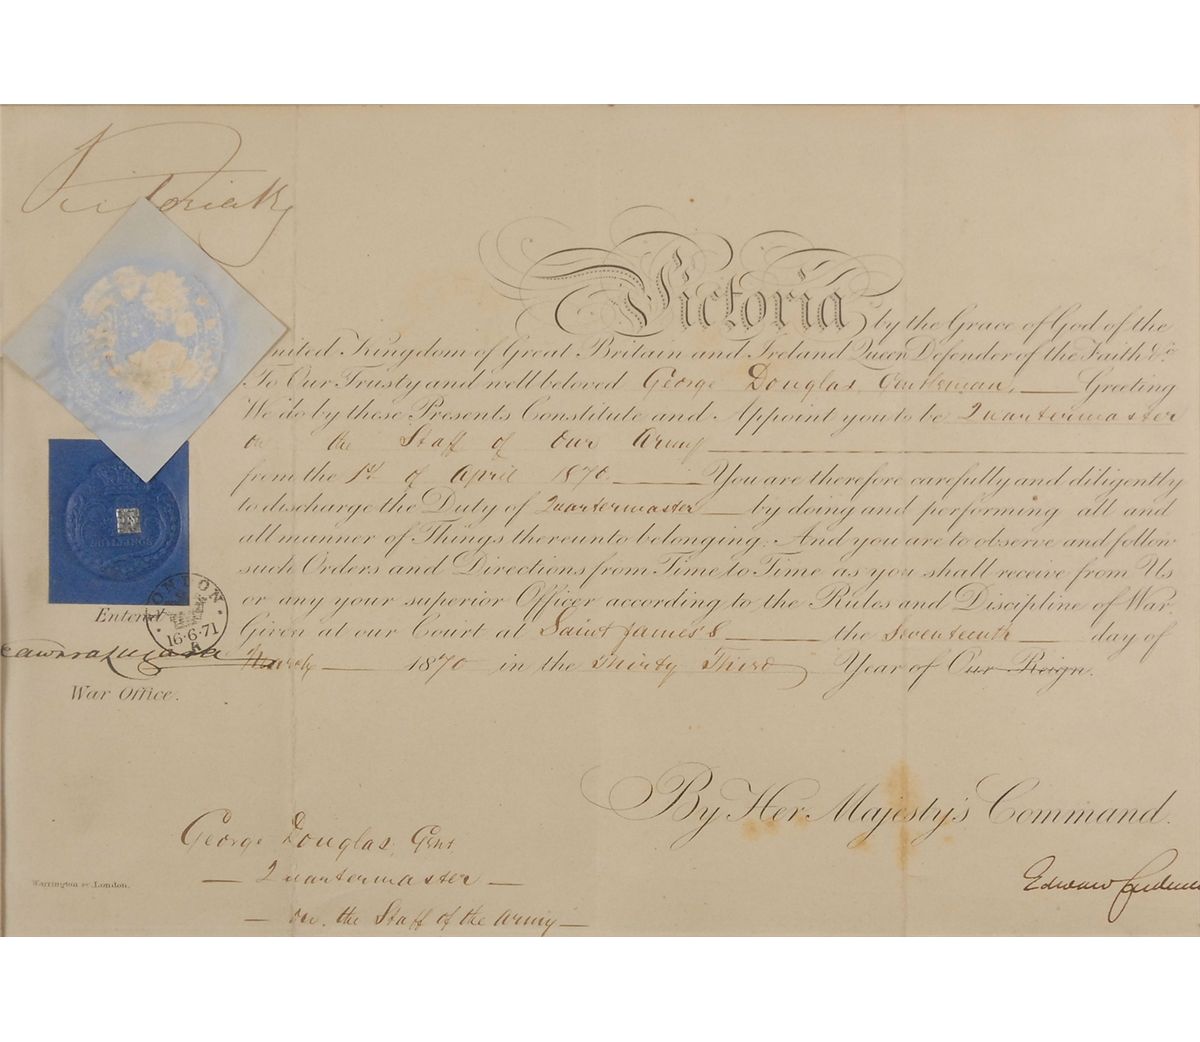 Victoria R
Victoria by the Grace of God of the
United Kingdom of Great Britain and Ireland Queen Defender of the Faith &c
To Our Trusty and well beloved George Douglas, Gentleman, Greeting
We do by these Presents Constitute and Appoint you to be Quartermaster
on the Staff of Our Army
from the 1st of April 1870. You are therefore carefully and diligently
to discharge the Duty of Quartermaster by doing and performing all and
all manner of Things thereunto belonging. And you are to observe and follow
such Orders and Directions from Time to Time as you shall receive from Us
or any your superior Officer according to the Rules and Discipline of War.
Given at our Court at Saint James's the Seventeenth day of
March 1870 in the Thirty Third Year of Our Reign.
SHILLINGS
LONDON
16·6·71
Entered
War Office.
By Her Majesty's Command.
George Douglas, Gent,
Quartermaster
on the Staff of the Army
Warrington sc. London.
Edward